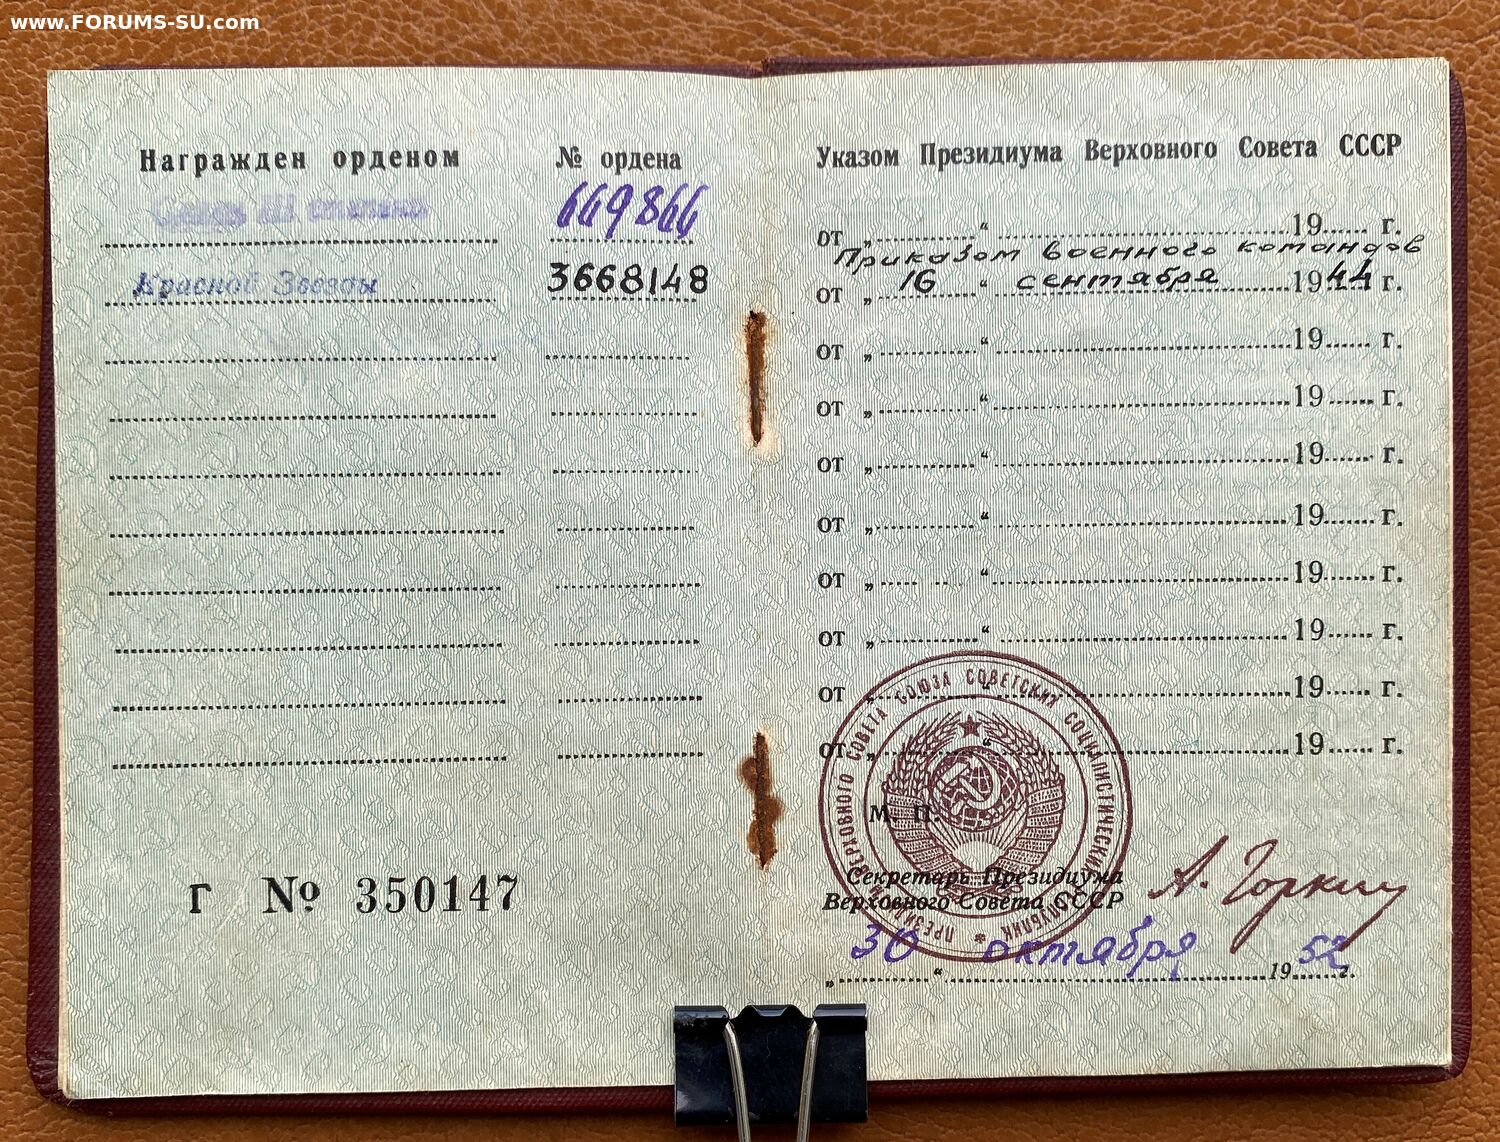 www.FORUMS-SU.com
Награжден орденом № ордена
Славы III степени 669866
Красной Звезды 3668148
Г № 350147
Указом Президиума Верховного Совета СССР
от „ “ 19 г.
Приказом военного командов
от „ 16 “ сентября 1944 г.
от „ “ 19 г.
от „ “ 19 г.
от „ “ 19 г.
от „ “ 19 г.
от „ “ 19 г.
от „ “ 19 г.
от „ “ 19 г.
от „ “ 19 г.
ПРЕЗИДИУМ ВЕРХОВНОГО СОВЕТА СОЮЗА СОВЕТСКИХ СОЦИАЛИСТИЧЕСКИХ РЕСПУБЛИК
М. П.
Секретарь Президиума
Верховного Совета СССР
А. Горкин
„ 30 “ октября 1952 г.